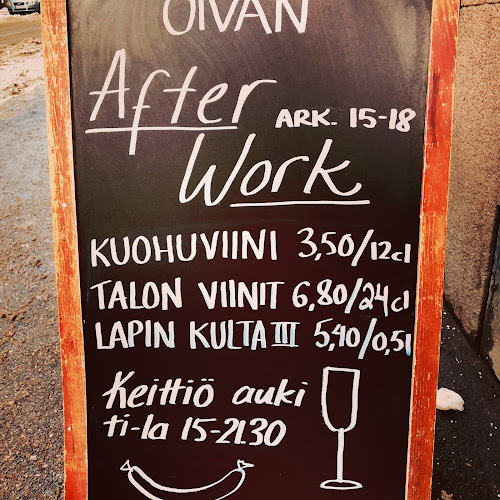 OIVAN
After
ARK. 15-18
Work
KUOHUVIINI 3,50/12cl
TALON VIINIT 6,80/24cl
LAPIN KULTA III 5,40/0,5l
Keittiö auki
ti-la 15-21.30